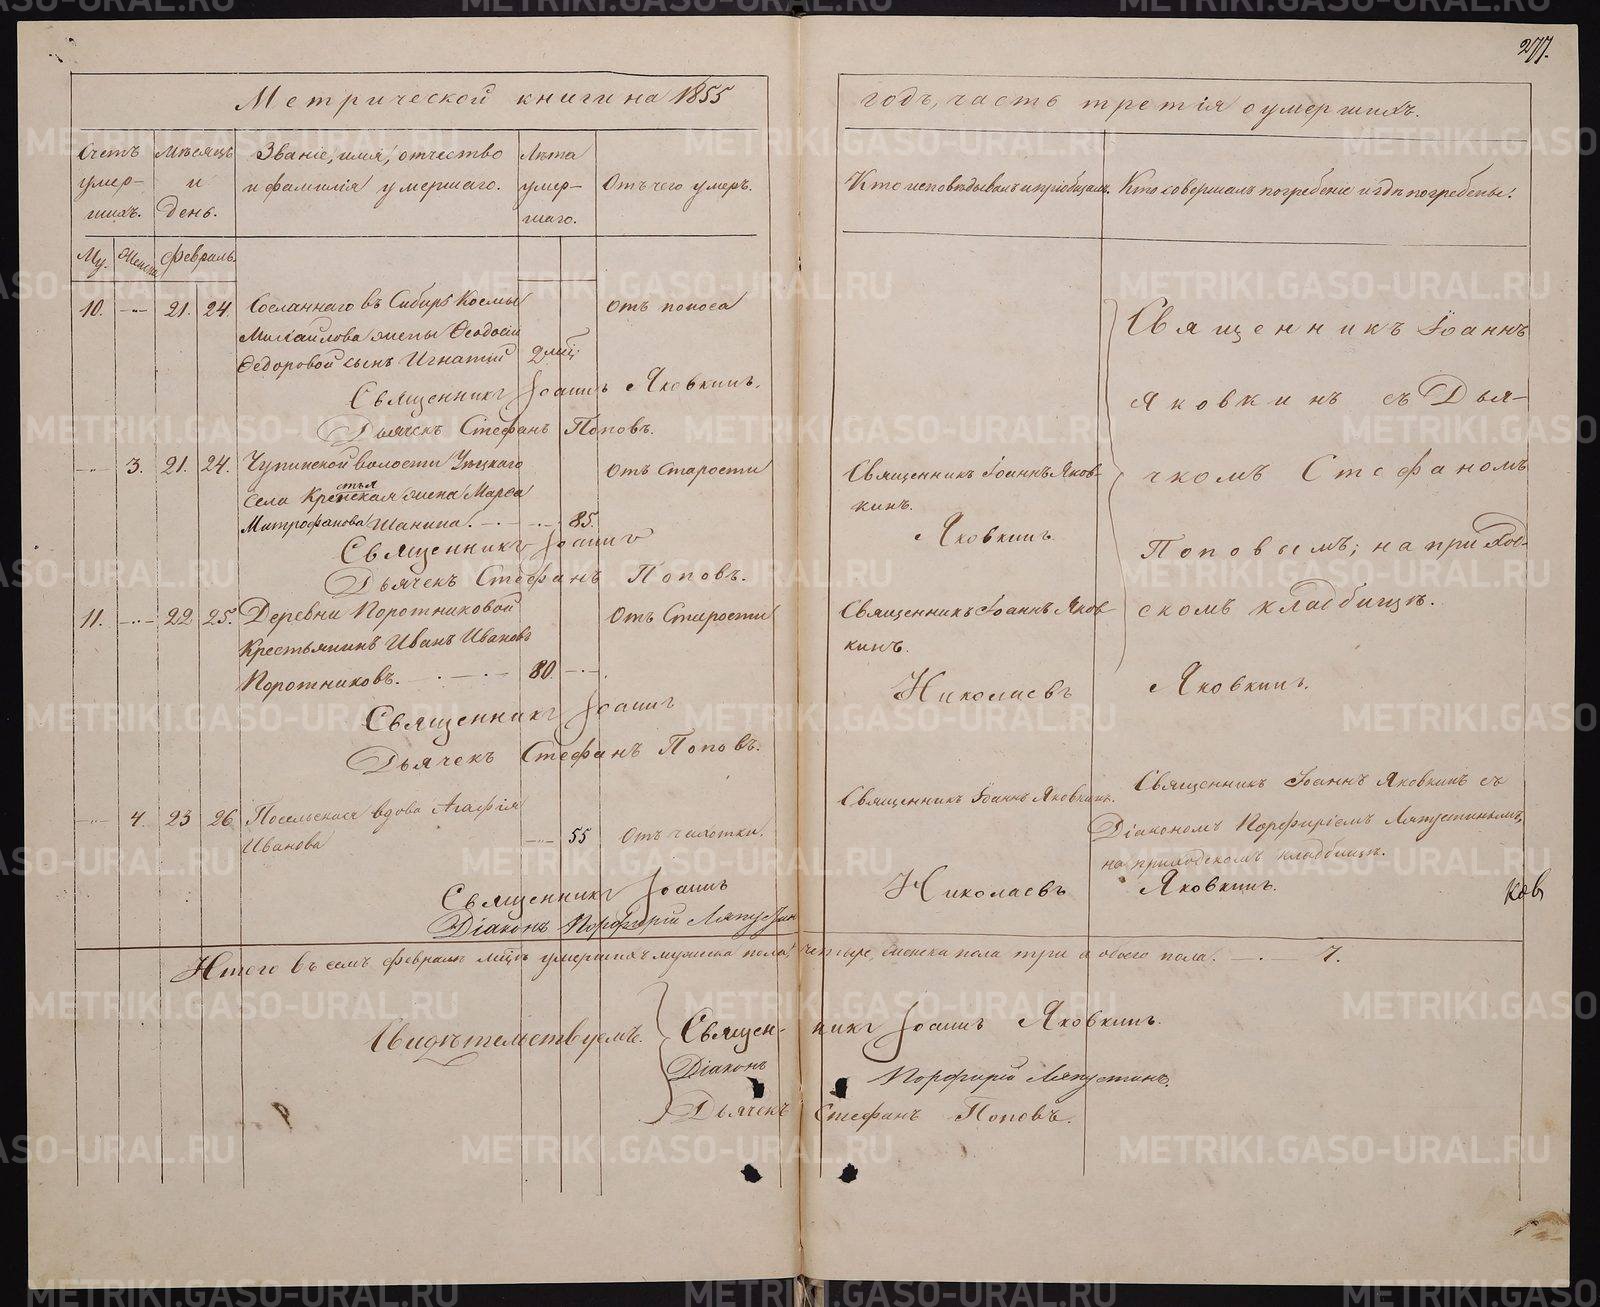 277.
Метрической книги на 1855
годъ, часть третія о умершихъ.
Счетъ умер-шихъ.
Мѣсяцъ и день.
Званіе, имя, отчество и фамилія умершаго.
Лѣта умер-шаго.
Отъ чего умеръ.
Кто исповѣдывалъ и пріобщалъ.
Кто совершалъ погребеніе и гдѣ погребены.
Му. Женска Февраль.
10. 21. 24. Сосланнаго въ Сибирь Космы Отъ поноса
Михайлова жены Ѳеодосіи
Ѳедоровой сынъ Игнатій 2 мѣц
Священникъ Іоаннъ Яковкинъ.
Дьячекъ Стефанъ Поповъ.
Священникъ Іоаннъ
Яковкинъ съ Дья-
чкомъ Стефаномъ
Поповымъ; на приход-
скомъ кладбищѣ.
Яковкинъ.
3. 21. 24. Чупинской волости Отъ Старости
села Крестья жена Марѳа
Митрофанова Шанина. 85.
Священникъ Іоаннъ
Дьячекъ Стефанъ Поповъ.
Священникъ Іоаннъ Яков-
кинъ.
Яковкинъ.
11. 22 25. Деревни Поротниковой Отъ Старости
Крестьянинъ Иванъ Ивановъ
Поротниковъ. 80
Священникъ Іоаннъ
Дьячекъ Стефанъ Поповъ.
Священникъ Іоаннъ Яков-
кинъ.
Николаевъ
4. 23 26 Посельская вдова Агафія
Иванова 55 Отъ чахотки.
Священникъ Іоаннъ
Діаконъ Порфирій Ляпустин
Священникъ Іоаннъ Яковкинъ.
Николаевъ
Священникъ Іоаннъ Яковкинъ съ
Діакономъ Порфиріемъ Ляпустинымъ,
на приходскомъ кладбищѣ.
Яковкинъ.
ков
Итого въ семъ Февралѣ мѣцѣ умершихъ мужска пола четыре, женска пола три а обоего пола. 7.
Свидѣтельствуемъ.
Священ-никъ Іоаннъ Яковкинъ.
Діаконъ Порфирій Ляпустинъ.
Дьячекъ Стефанъ Поповъ.
METRIKI.GASO-URAL.RU